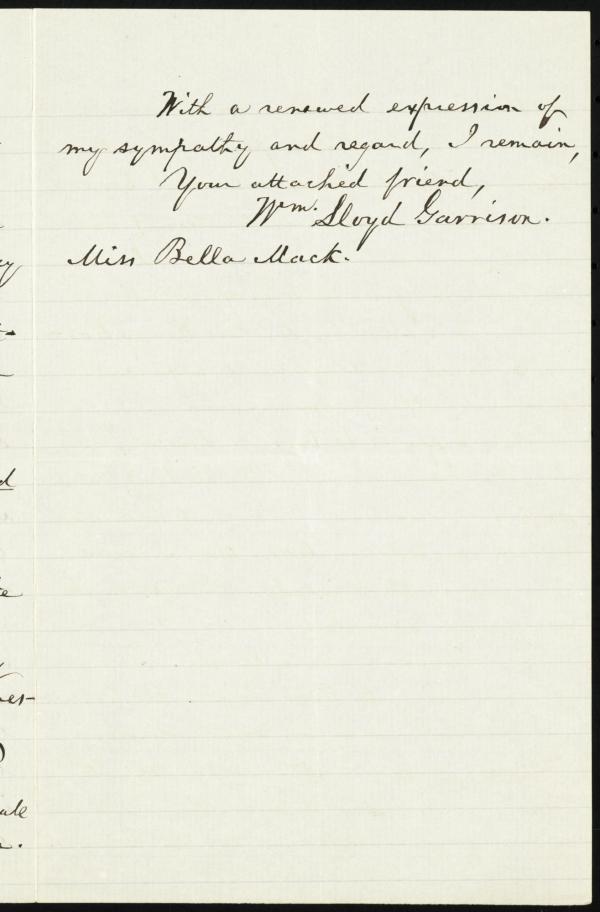 With a renewed expression of
my sympathy and regard, I remain,
Your attached friend,
Wm. Lloyd Garrison.
Miss Bella Mack.